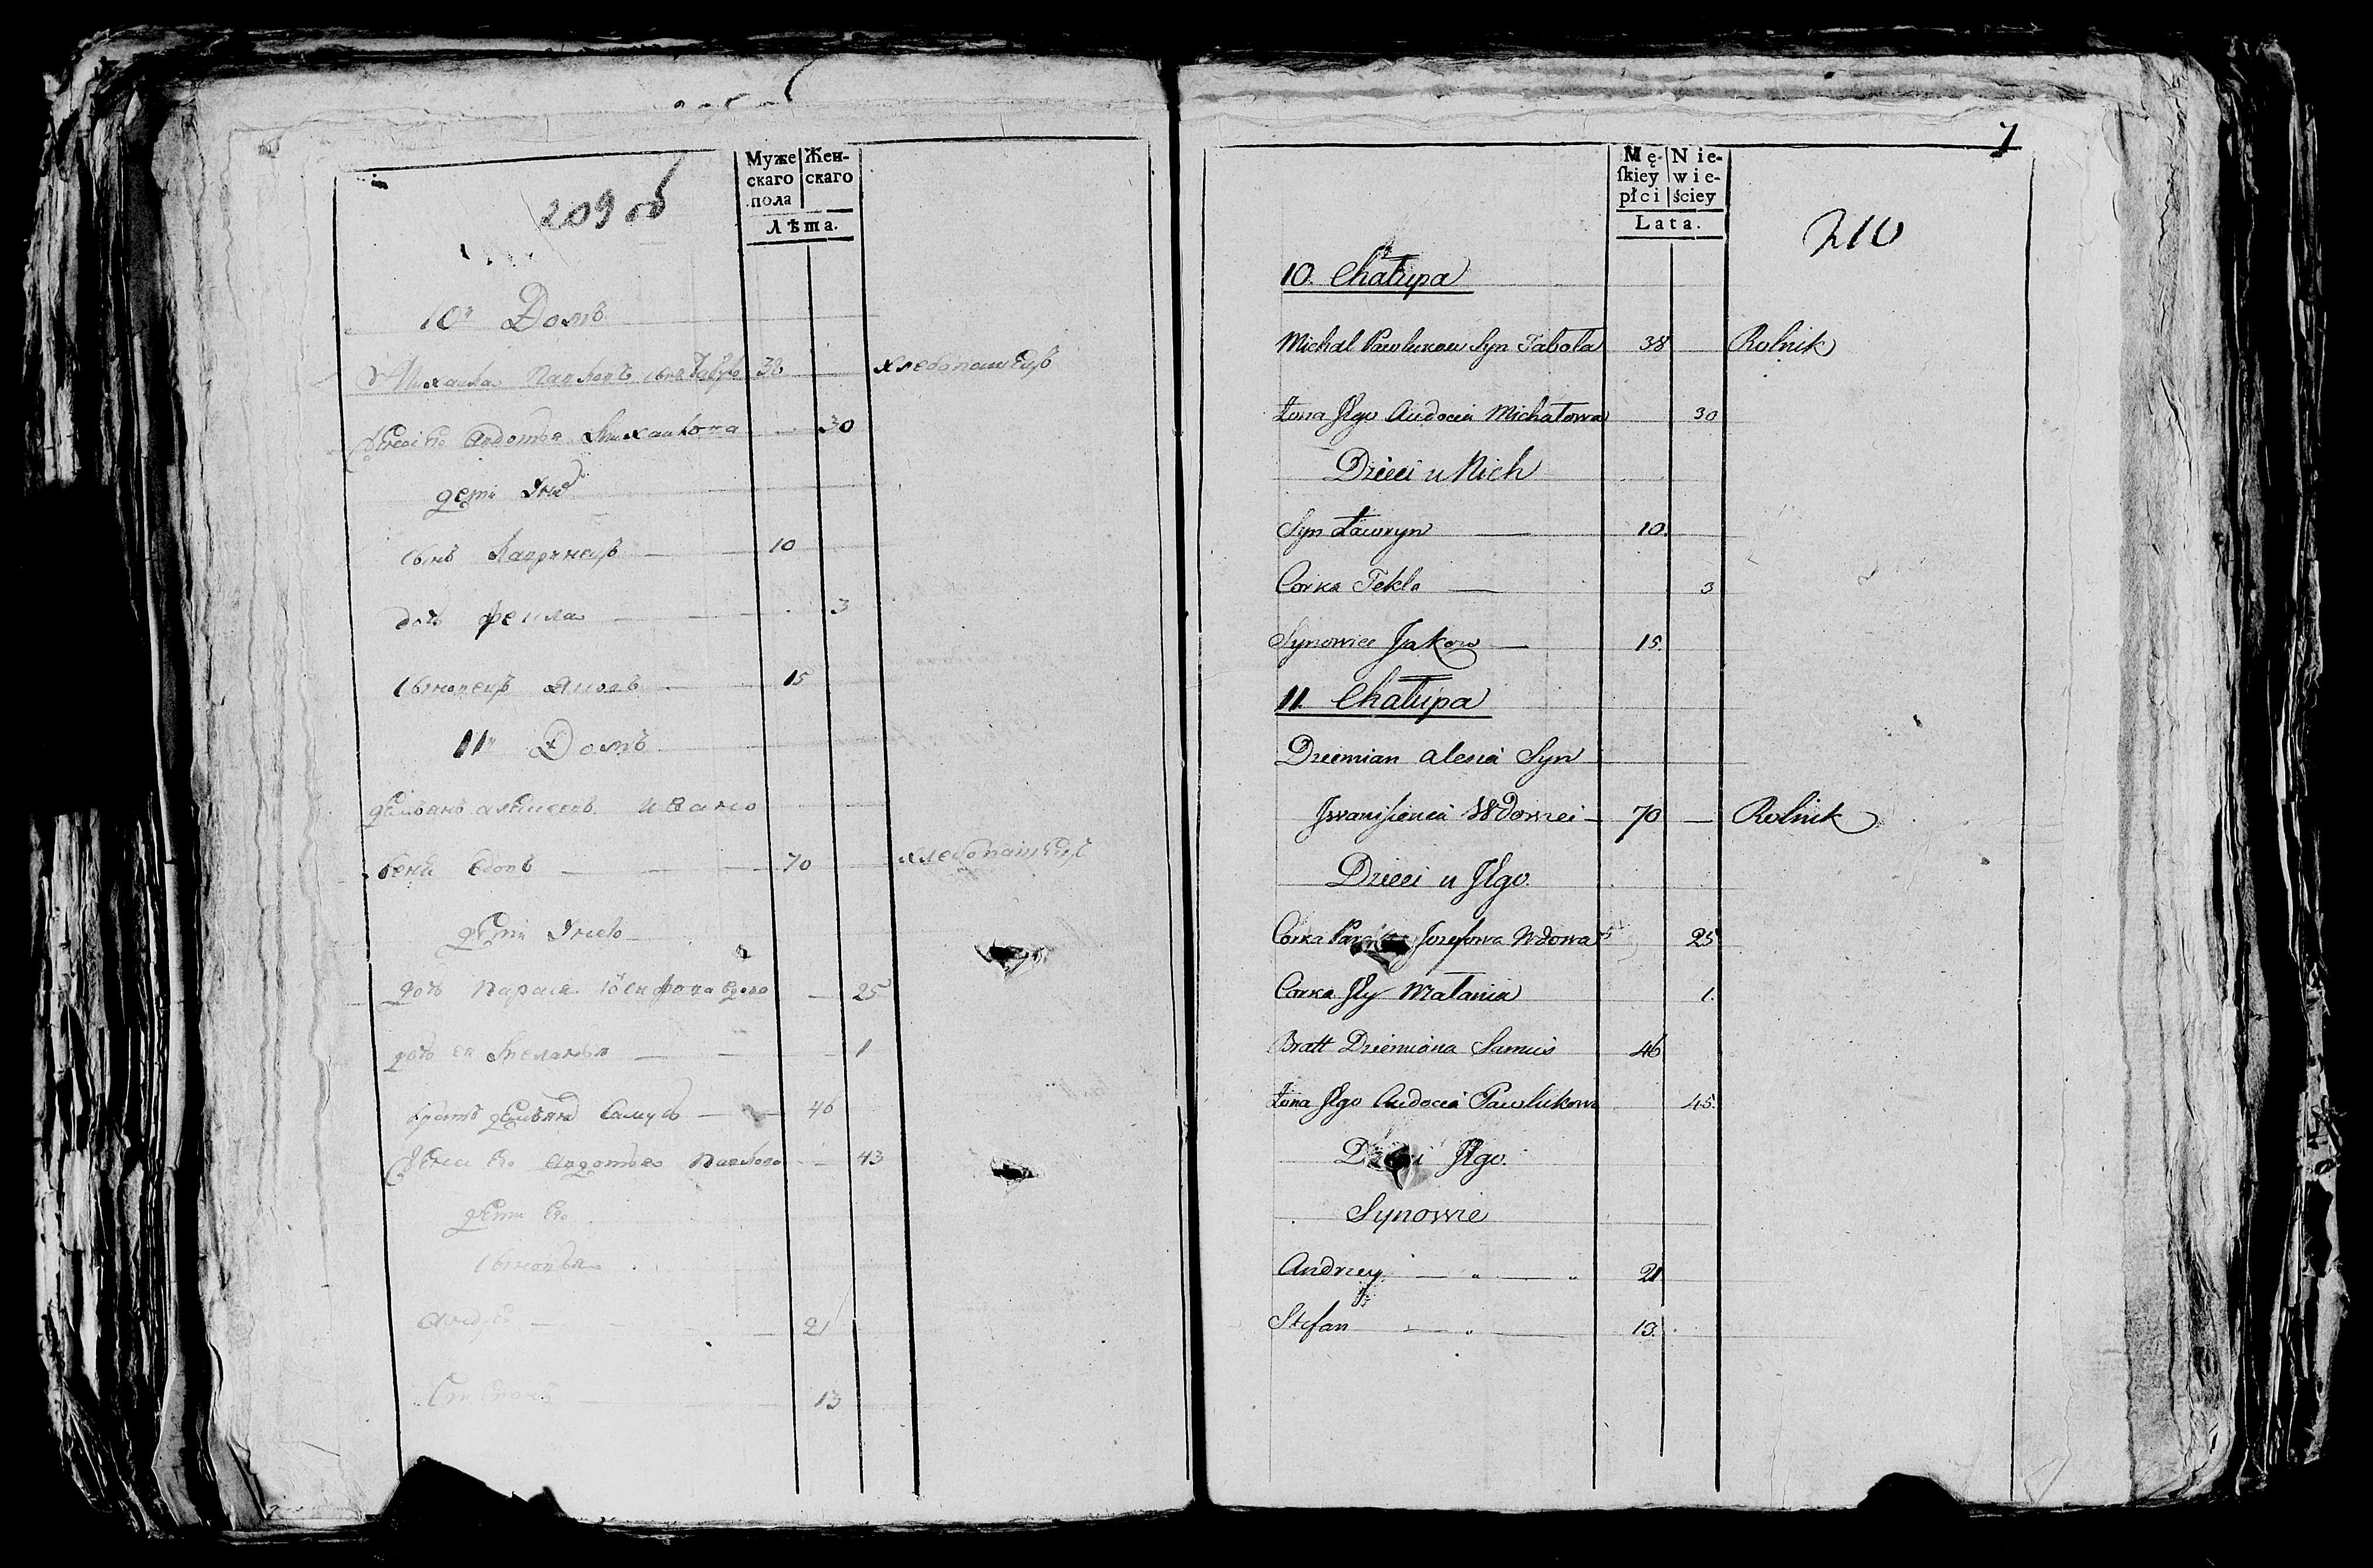 209 об
Муже Жен-
скаго скаго
пола
Лѣта.
10й Домъ
Михайла Павловъ сынъ 38 хлебопашецъ
Жена Его Авдотья Михайлова 30
дети Ихъ
сынъ Лавринецъ 10
дочь Фекла 3
сыновецъ Яковъ 15
11й Домъ
Демьянъ Алексеевъ Ивани
сенка вдовъ 70 хлебопашецъ
дети Ихъ
дочь Парася Иосифова вдова 25
дочь ея Меланья 1
братъ Демьяна Самусь 46
Жена Его Авдотья Павлова 43
дети Его
сыновья
Андрей 21
Степанъ 13
7
Mę- Nie-
ſkiey wie-
płci ściey
Lata.
210
10. Chałupa
Michal Pawlukow Syn Tabola 38 Rolnik
Żona Jego Audocia Michałowa 30
Dzieci u Nich
Syn Ławryn 10.
Corka Tekla 3
Synowiec Jakow 15.
11. Chałupa
Dziemian Alesia Syn
Iwanisienia Wdowiei 70 Rolnik
Dzieci u Jego.
Corka Jozefowa Wdowa 25
Corka Jey Małania 1.
Bratt Dziemiana Samuś 46
Żona Jego Audocia Pawlukow 45.
Dzieci Jego.
Synowie
Andrzey 21
Stefan 13.